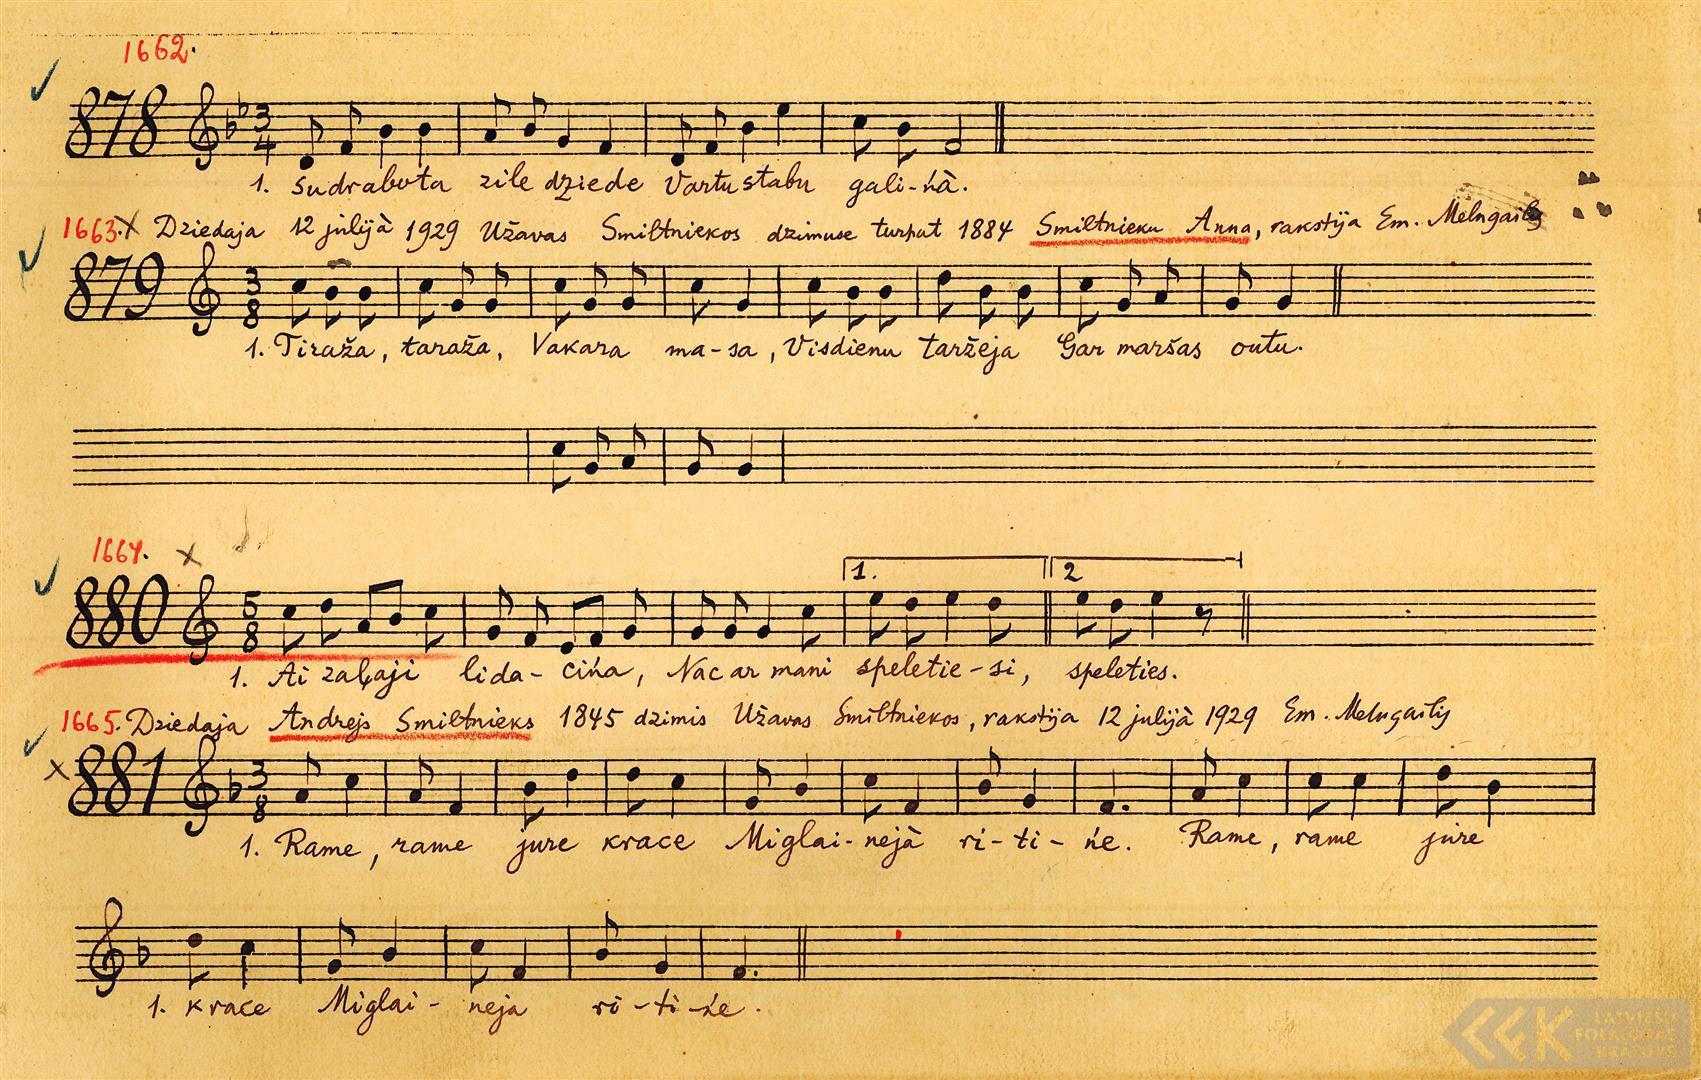 1662.
878 3 4
1. Sudrabota zile dziede Vartu stabu gali-ńà.
1663. x Dziedaja 12 julijà 1929 Užavas Smiltniekos dzimuse turpat 1884 Smiltnieku Anna, rakstija Em. Melngailis
879 3 8
1. Tiraža, taraža, Vakara ma-sa, Visdienu taržeja Gar maršas outu.
1664. x
1. 2
880 5 8
1. Ai zaļaji lida-cińa, Nac ar mani speletie-si, speleties.
1665. Dziedaja Andrejs Smiltnieks 1845 dzimis Užavas Smiltniekos, rakstija 12 julijà 1929 Em. Melngailis
x 881 3 8
1. Rame, rame jure krace Miglai-nejà ri-ti-ńe. Rame, rame jure
1. krace Miglai-neja ri-ti-ńe.
LATVIEŠU
FOLKLORAS
KRĀTUVE